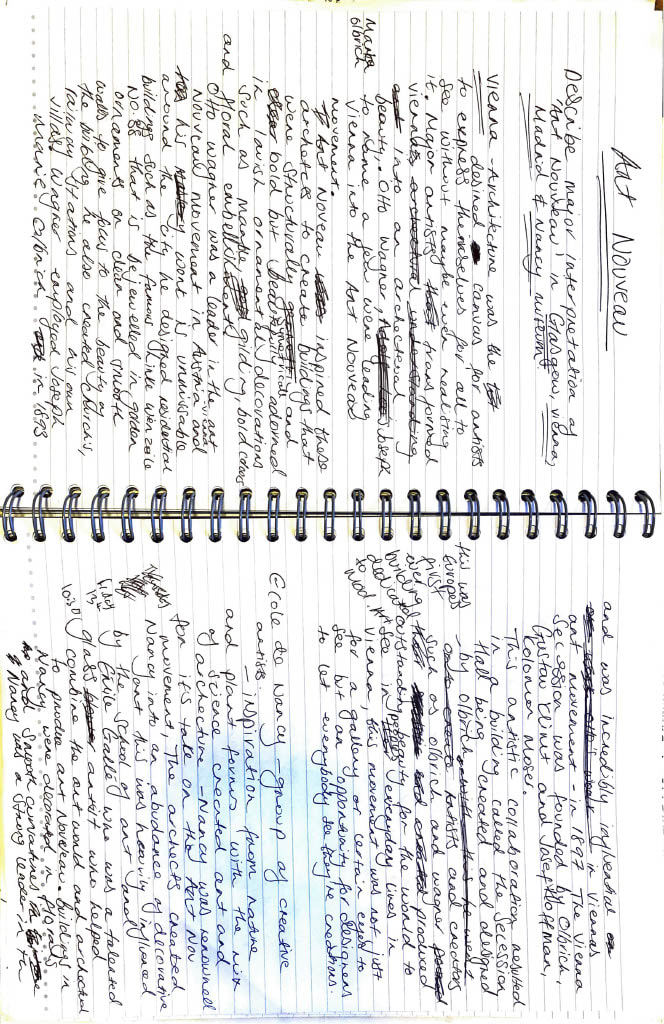 Art Nouveau
Describe major interpretation of
'Art Nouveau' in Glasgow, Vienna,
Madrid & Nancy museums
Vienna - Architecture was the
desired canvas for artists
to express themselves for all to
see without maybe even realising
it. Major artists transformed
viennas
into an archectural
beauty. Otto Wagner, Joseph
Maria olbrich
to name a few were leading
Vienna into the Art Nouveau
movement.
Art Noveau inspired these
archetects to create buildings that
were structurally and
bold but beautifull adorned
in lavish ornamental decorations
such as maybe giding bold colours
and floral embellishments
Otto Wagner was a leader in the art
Nouveau movement in Austria and
his work is unmissable
around the city he designed residential
buildings such as the famous Linke Wienzeile
No 38 that is bejewelled in golden
ornaments on clean and smooth
walls to give focus to the beauty of
the building, he also created Church's,
railway stations and his own
villas. Wagner employed Joseph
Maria Olbrich in 1893
and was incredibly influential
in viennas
art movement - in 1897 The Vienna
Secession was founded by Olbrich,
Gustav Klimt and Josef Hoffman,
Koloman Moser.
This artistic collaboration resulted
in a building called the Secession
Hall being created and designed
- by Olbrich
this was Europes first
Artists and creators
such as Olbrich and Wagner
produced
outstanding beauty for the world to
see in everyday lives in
Vienna, this movement was not just
for a gallery or certain eyes to
see but an opportunity for designers
to let everybody see they're creations.
Ecole de Nancy - group of creative
artists.
- inspiration from nature
and plant forms with the mix
of science created art and
of archecture - Nancy was renowned
for it's take on the Art Nov
movement, The archects created
Nancy into an abudance of decorative
art this was heavily influenced
by the School of art and
by Emile Gallé who was a talented
glass artist who helped
combine the art world and archetect
to produce art Nouveau. buildings in
Nancy were decorated in florals
and curvations
Nancy was a strong leader in the